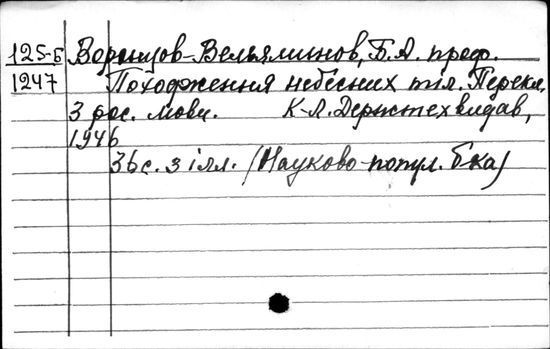 125-Б Воронцов-Вельяминов, Б.А. проф.
1247 Походження небесних тіл. Перекл.
з рос. мови. К-Л. Держтехвидав,
1946
36с. з ілл. (Науково-попул. б-ка)